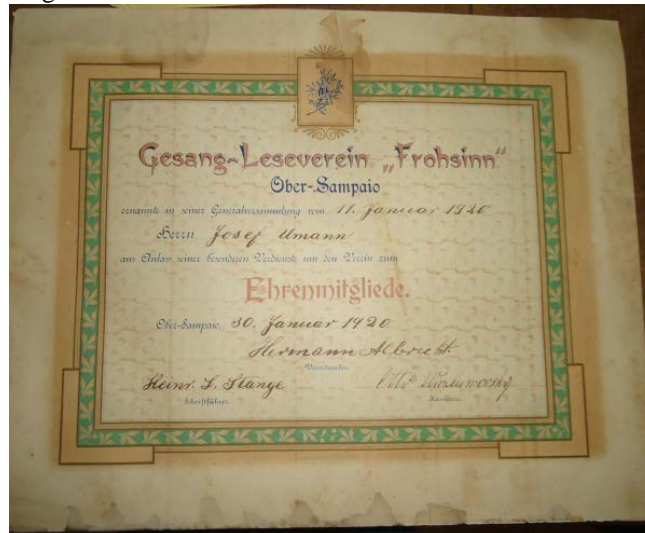 Gesang-Leseverein „Frohsinn"
Ober-Sampaio
ernannte in seiner Generalversammlung vom 11. Januar 1920
Herrn Josef Umann
aus Anlass seiner besonderen Verdienste um den Verein zum
Ehrenmitgliede.
Ober-Sampaio, 30. Januar 1920.
Hermann Albrecht.
Vorsitzender.
Heinr. L. Stange Otto
Schriftführer. Kassierer.